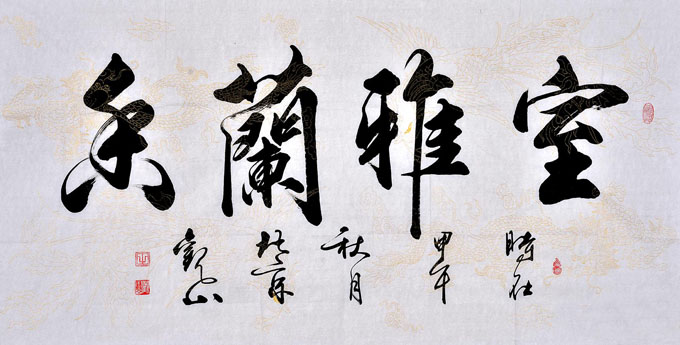 室雅蘭香
時在甲午秋月於京